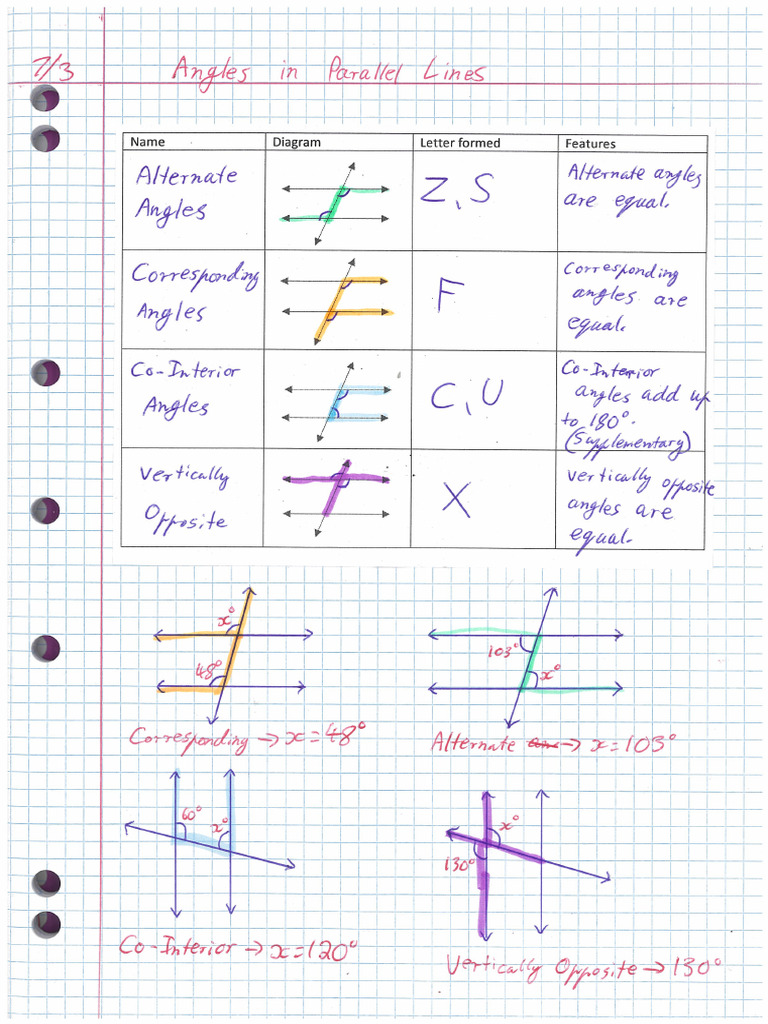 7/3 Angles in Parallel Lines
Name Diagram Letter formed Features
Alternate
Angles
Z, S
Alternate angles
are equal.
Corresponding
Angles
F
Corresponding
angles are
equal.
Co-Interior
Angles
C, U
Co-Interior
angles add up
to 180°.
(Supplementary)
Vertically
Opposite
X
Vertically opposite
angles are
equal.
x°
48°
Corresponding → x=48°
103°
x°
Alternate → x=103°
60°
x°
Co-Interior → x=120°
x°
130°
Vertically Opposite → 130°